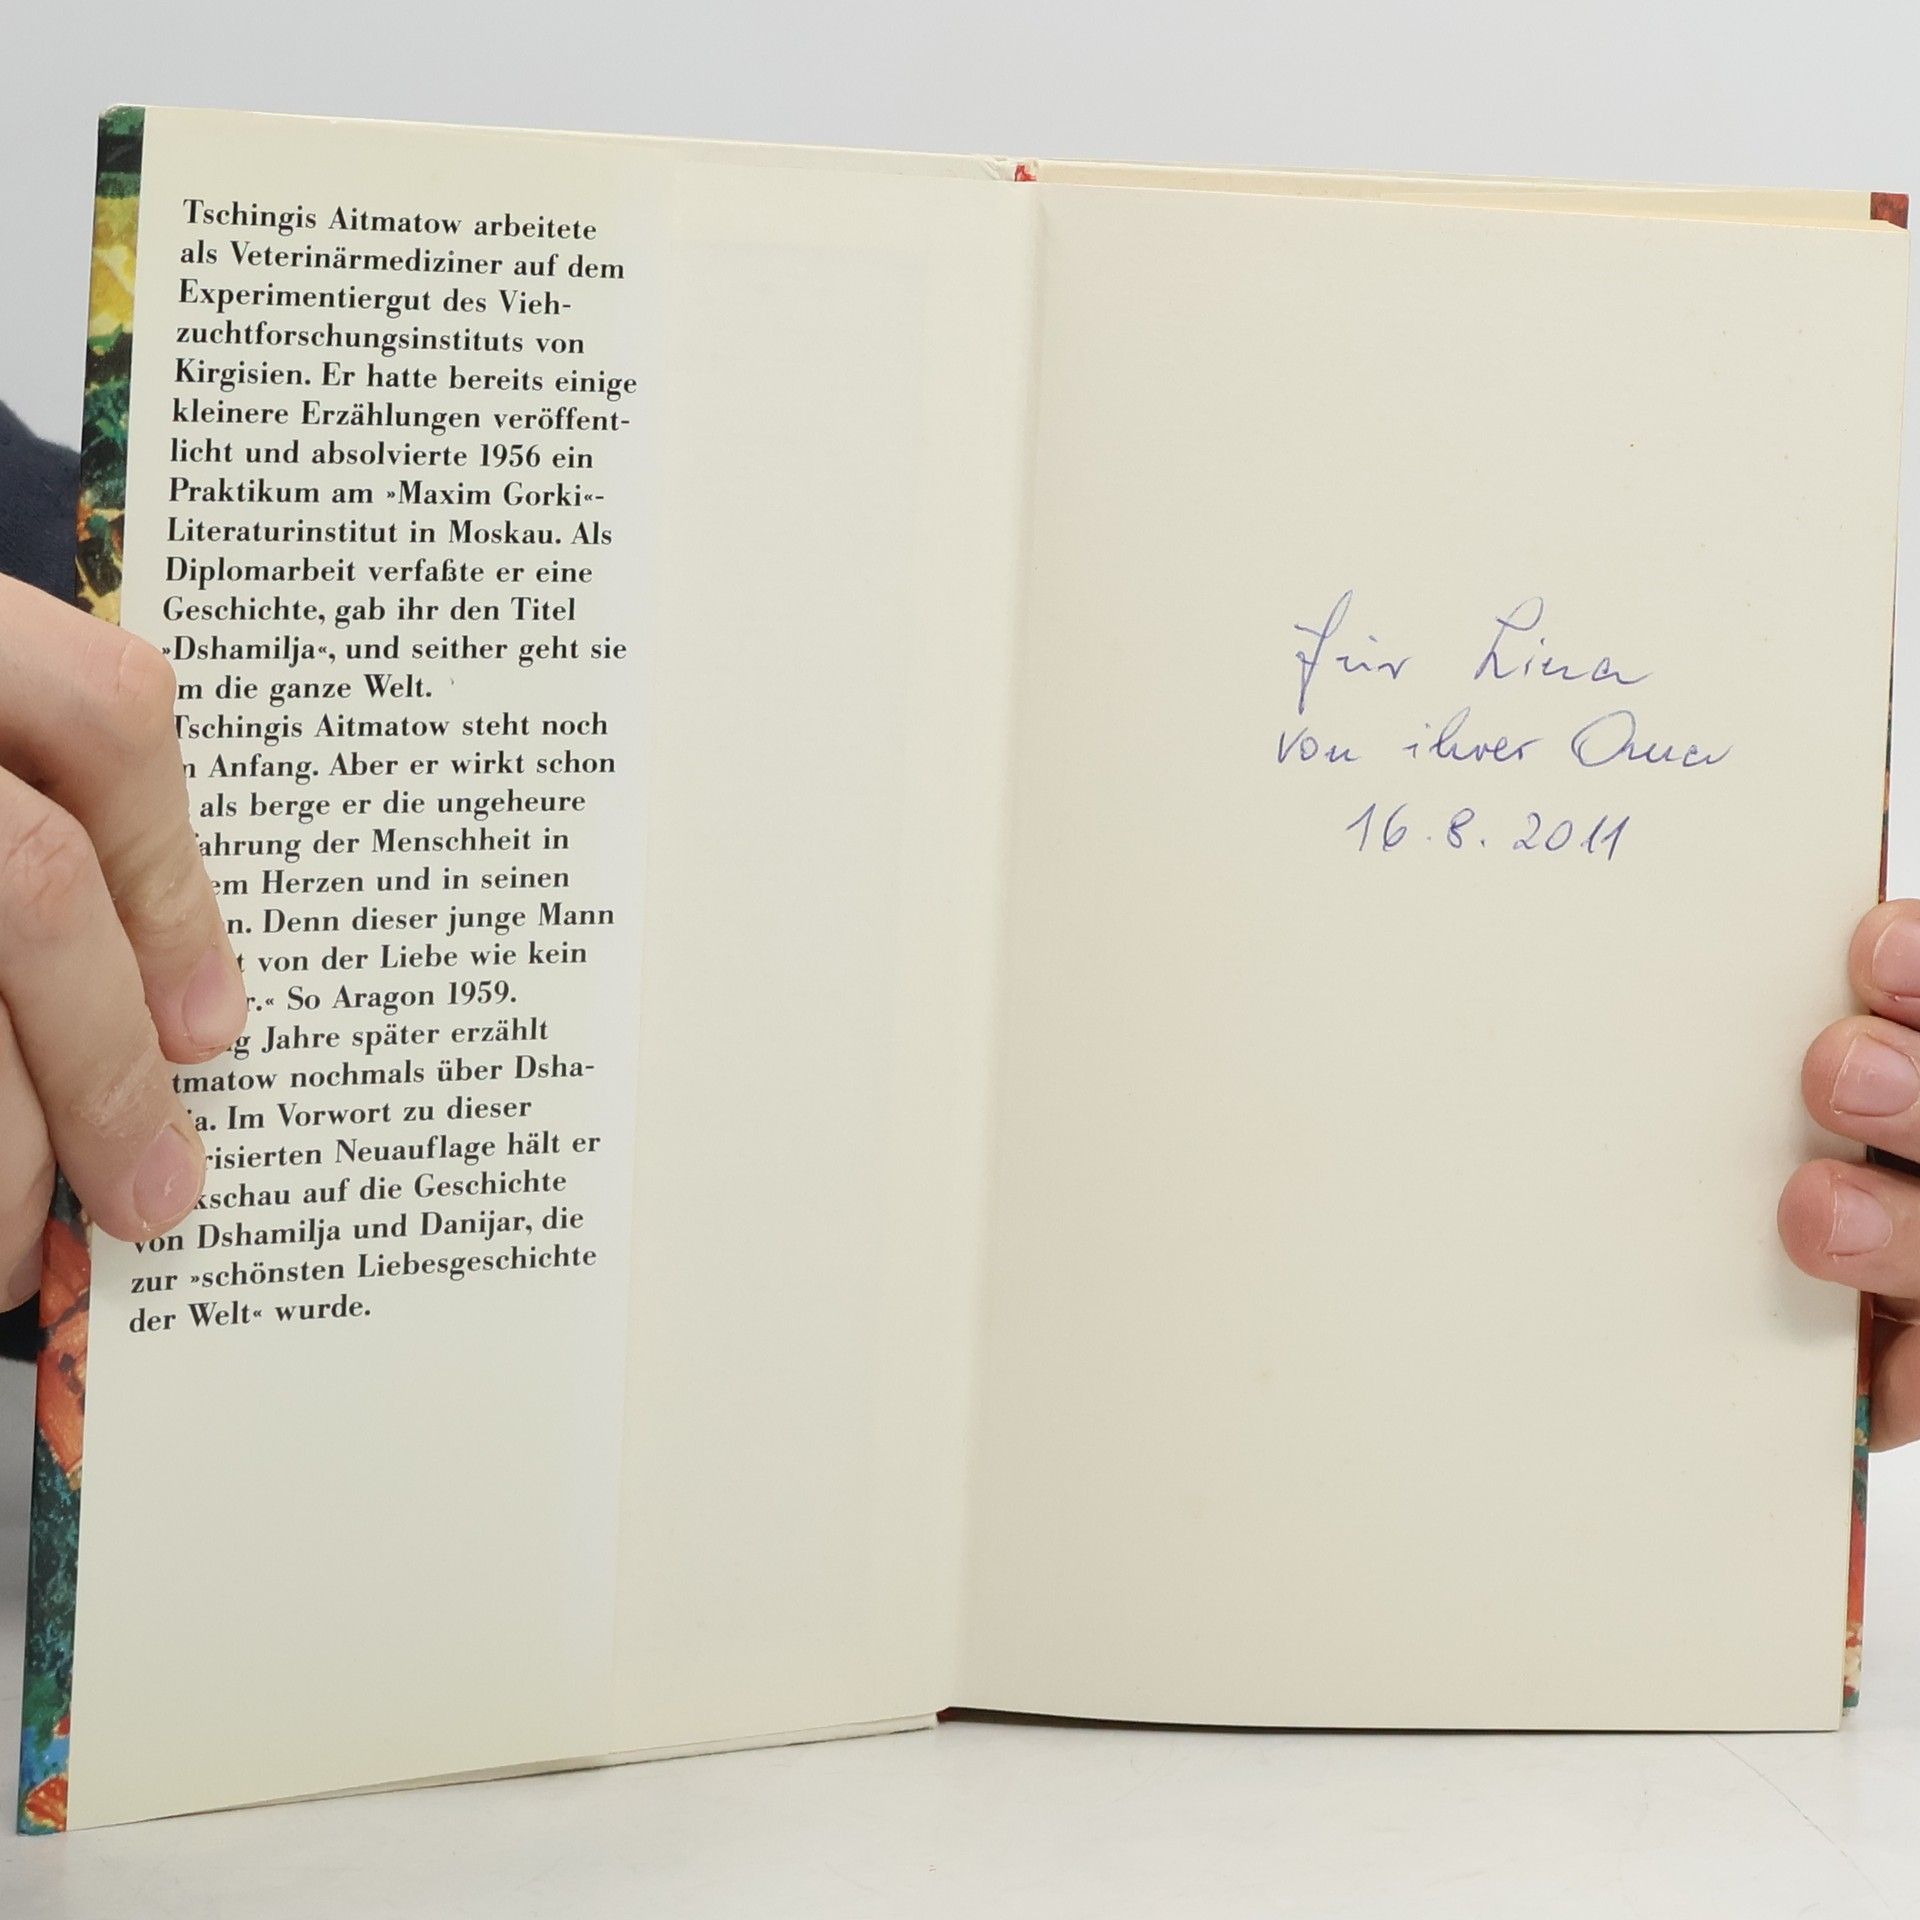 Tschingis Aitmatow arbeitete
als Veterinärmediziner auf dem
Experimentiergut des Vieh-
zuchtforschungsinstituts von
Kirgisien. Er hatte bereits einige
kleinere Erzählungen veröffent-
licht und absolvierte 1956 ein
Praktikum am »Maxim Gorki«-
Literaturinstitut in Moskau. Als
Diplomarbeit verfaßte er eine
Geschichte, gab ihr den Titel
»Dshamilja«, und seither geht sie
die ganze Welt.
Tschingis Aitmatow steht noch
Anfang. Aber er wirkt schon
als berge er die ungeheure
der Menschheit in
Herzen und in seinen
Denn dieser junge Mann
von der Liebe wie kein
So Aragon 1959.
Jahre später erzählt
nochmals über Dsha-
Im Vorwort zu dieser
Neuauflage hält er
auf die Geschichte
von Dshamilja und Danijar, die
zur »schönsten Liebesgeschichte
der Welt« wurde.
für Lina
von ihrer Oma
16.8.2011